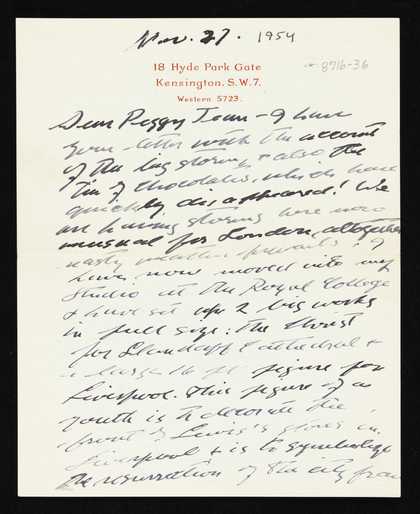 Nov. 27. 1954
8716-36
18 Hyde Park Gate
Kensington. S.W.7.
Western 5723.
Dear Peggy Jean – I have
your letter with the account
of the big storm, & also the
tin of chocolates, which have
quickly disappeared! We
are having storms here now
unusual for London, altogether
nasty weather prevails. I
have now moved into my
studio at the Royal College
& have set up 2 big works
in full size: The Christ
for Llandaff Cathedral &
a large figure for
Liverpool. This figure of a
youth is to decorate the
front of Lewis's stores in
Liverpool & is to symbolize
the resurrection of the city from